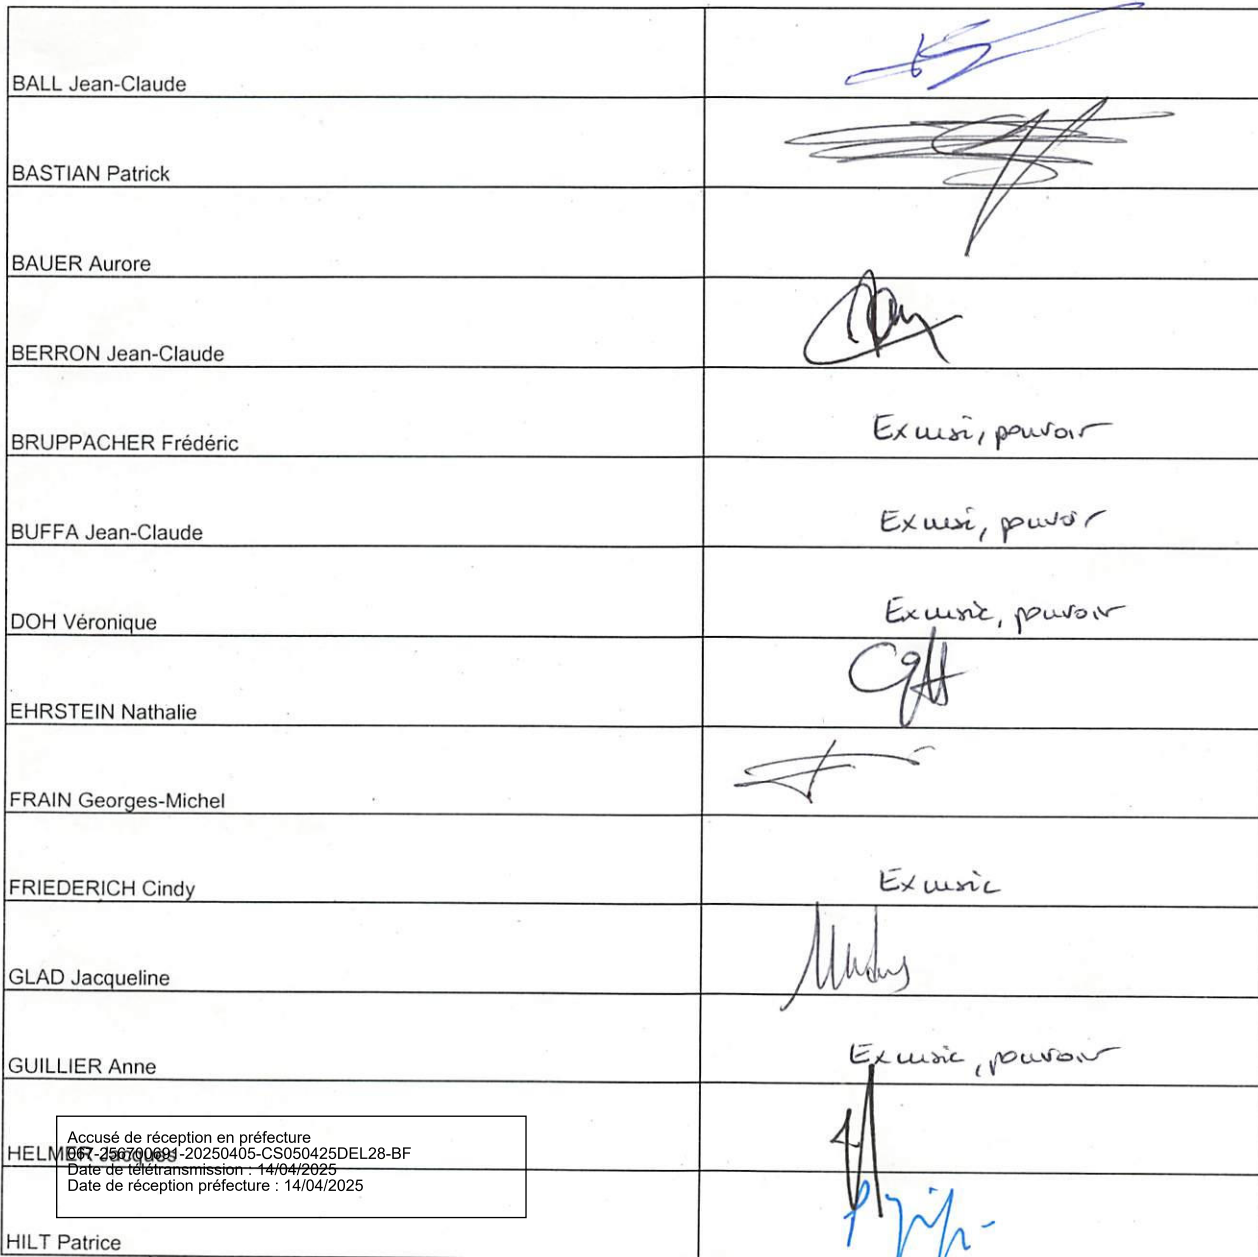 BALL Jean-Claude
BASTIAN Patrick
BAUER Aurore
BERRON Jean-Claude
BRUPPACHER Frédéric Excusé, pouvoir
BUFFA Jean-Claude Excusé, pouvoir
DOH Véronique Excusée, pouvoir
EHRSTEIN Nathalie
FRAIN Georges-Michel
FRIEDERICH Cindy Excusée
GLAD Jacqueline
GUILLIER Anne Excusée, pouvoir
Accusé de réception en préfecture
HELMER Jacques
067-256700691-20250405-CS050425DEL28-BF
Date de télétransmission : 14/04/2025
Date de réception préfecture : 14/04/2025
HILT Patrice